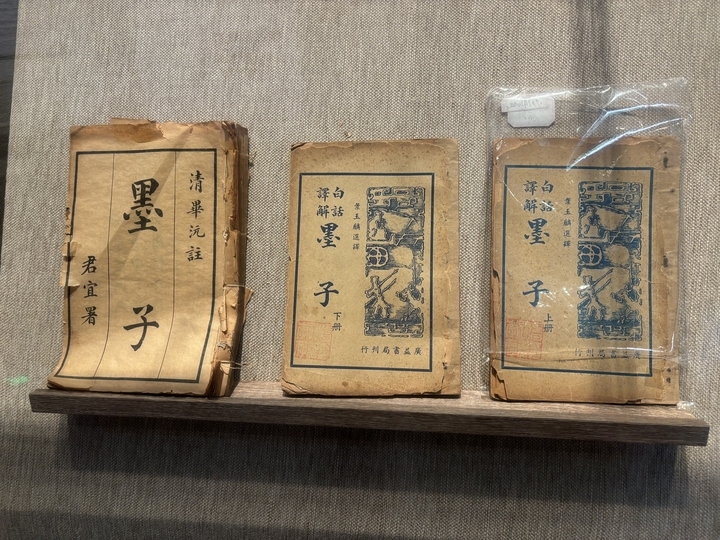 清畢沅註
墨子
君宜署
白話
譯解
墨子
下册
葉玉麟選譯
廣益書局刊行
白話
譯解
墨子
上册
葉玉麟選譯
廣益書局刊行